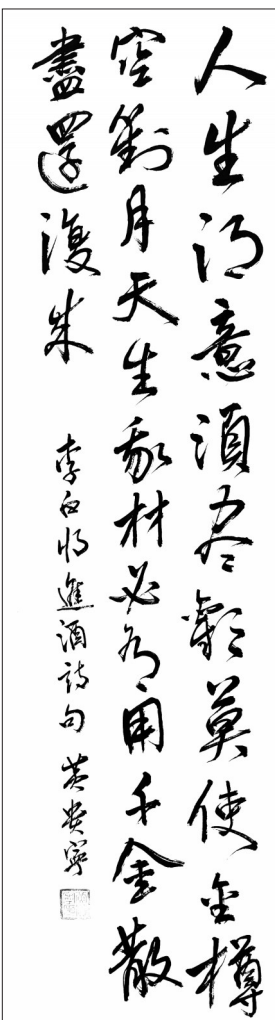 人生得意須尽歡莫使金樽
空對月天生我材必有用千金散
盡還復来
李白将進酒詩句 黄贵寧